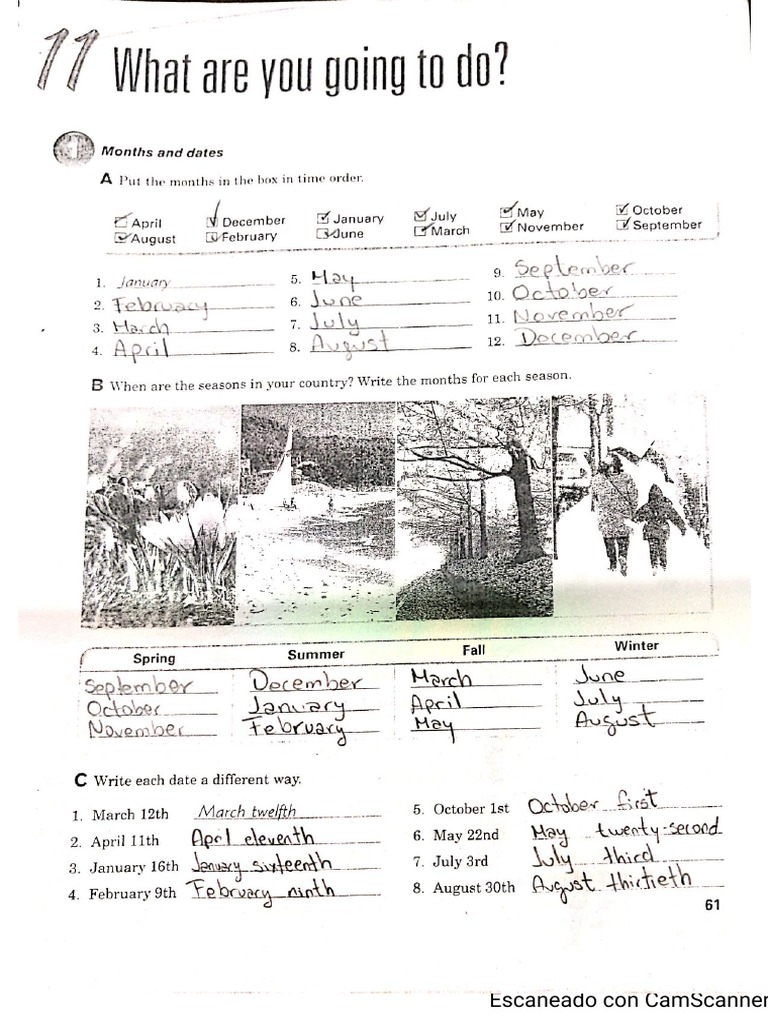 11 What are you going to do?
1 Months and dates
A Put the months in the box in time order.
April December January July May October
August February June March November September
1. January 5. May 9. September
2. February 6. June 10. October
3. March 7. July 11. November
4. April 8. August 12. December
B When are the seasons in your country? Write the months for each season.
Spring Summer Fall Winter
September December March June
October January April July
November February May August
C Write each date a different way.
1. March 12th March twelfth 5. October 1st October first
2. April 11th April eleventh 6. May 22nd May twenty-second
3. January 16th January sixteenth 7. July 3rd July third
4. February 9th February ninth 8. August 30th August thirtieth
61
Escaneado con CamScanner